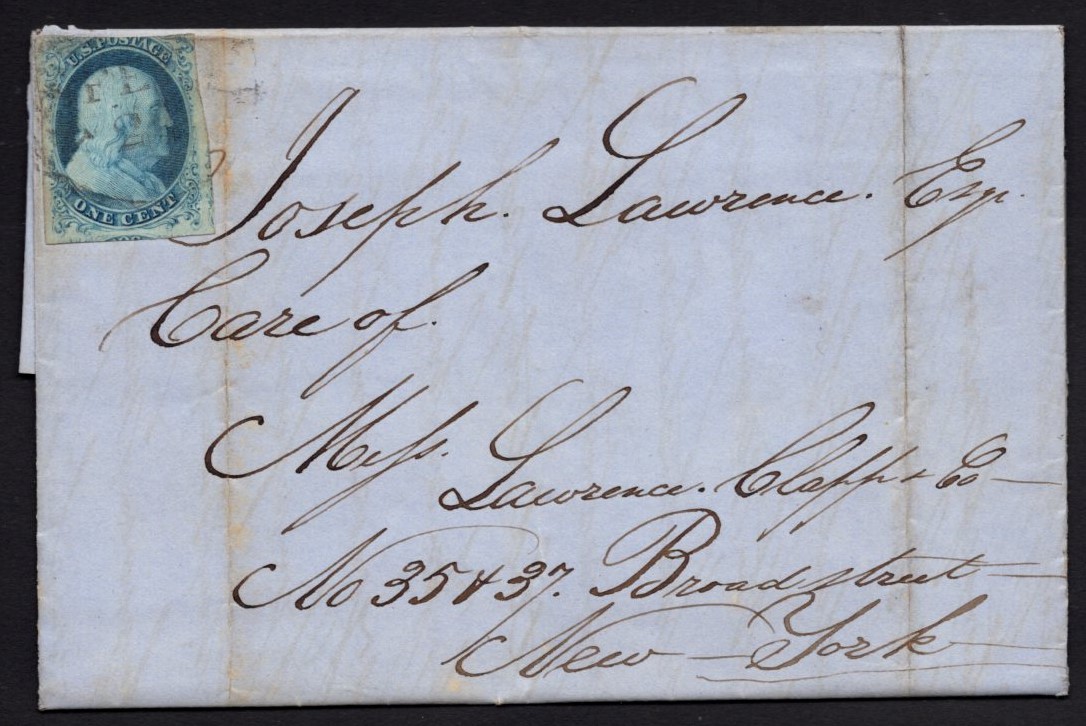 U.S. POSTAGE
ONE CENT
Joseph. Lawrence. Esqr.
Care of.
Mess. Lawrence. Clapp & Co
No 35 & 37. Broad street
New York